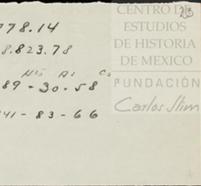 23
778.14
8.823.78
Hs As Cs
89-30-58
41-83-66
CENTRO DE
ESTUDIOS
DE HISTORIA
DE MEXICO
FUNDACIÓN
Carlos Slim